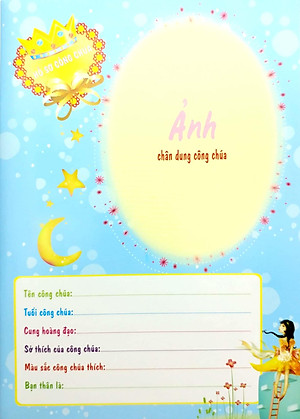 HỒ SƠ CÔNG CHÚA
Ảnh
chân dung công chúa
Tên công chúa:
Tuổi công chúa:
Cung hoàng đạo:
Sở thích của công chúa:
Màu sắc công chúa thích:
Bạn thân là: